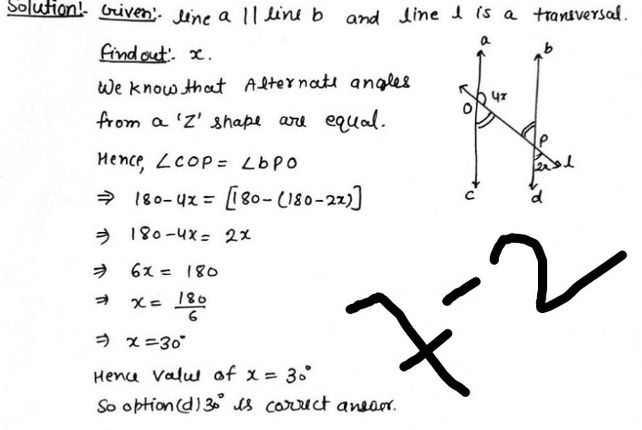 Solution:- Given:- line a || line b and line l is a transversal.
Find out:- x.
We know that Alternate angles
from a 'Z' shape are equal.
Hence, ∠COP = ∠bPO
⇒ 180-4x = [180-(180-2x)]
⇒ 180-4x = 2x
⇒ 6x = 180
⇒ x = 180/6
⇒ x = 30°
Hence value of x = 30°
So option (d) 30° is correct answer.
a
b
4x
O
P
2x
l
c
d
x-2